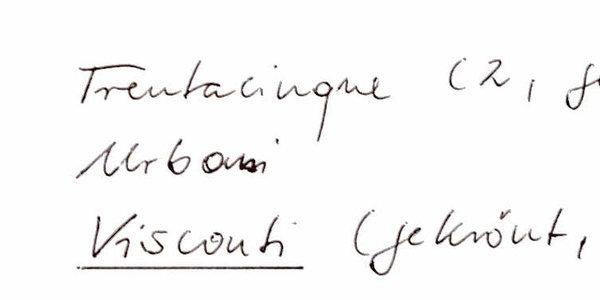 Trentacinque (2,
Urbani
Visconti (gekrönt,